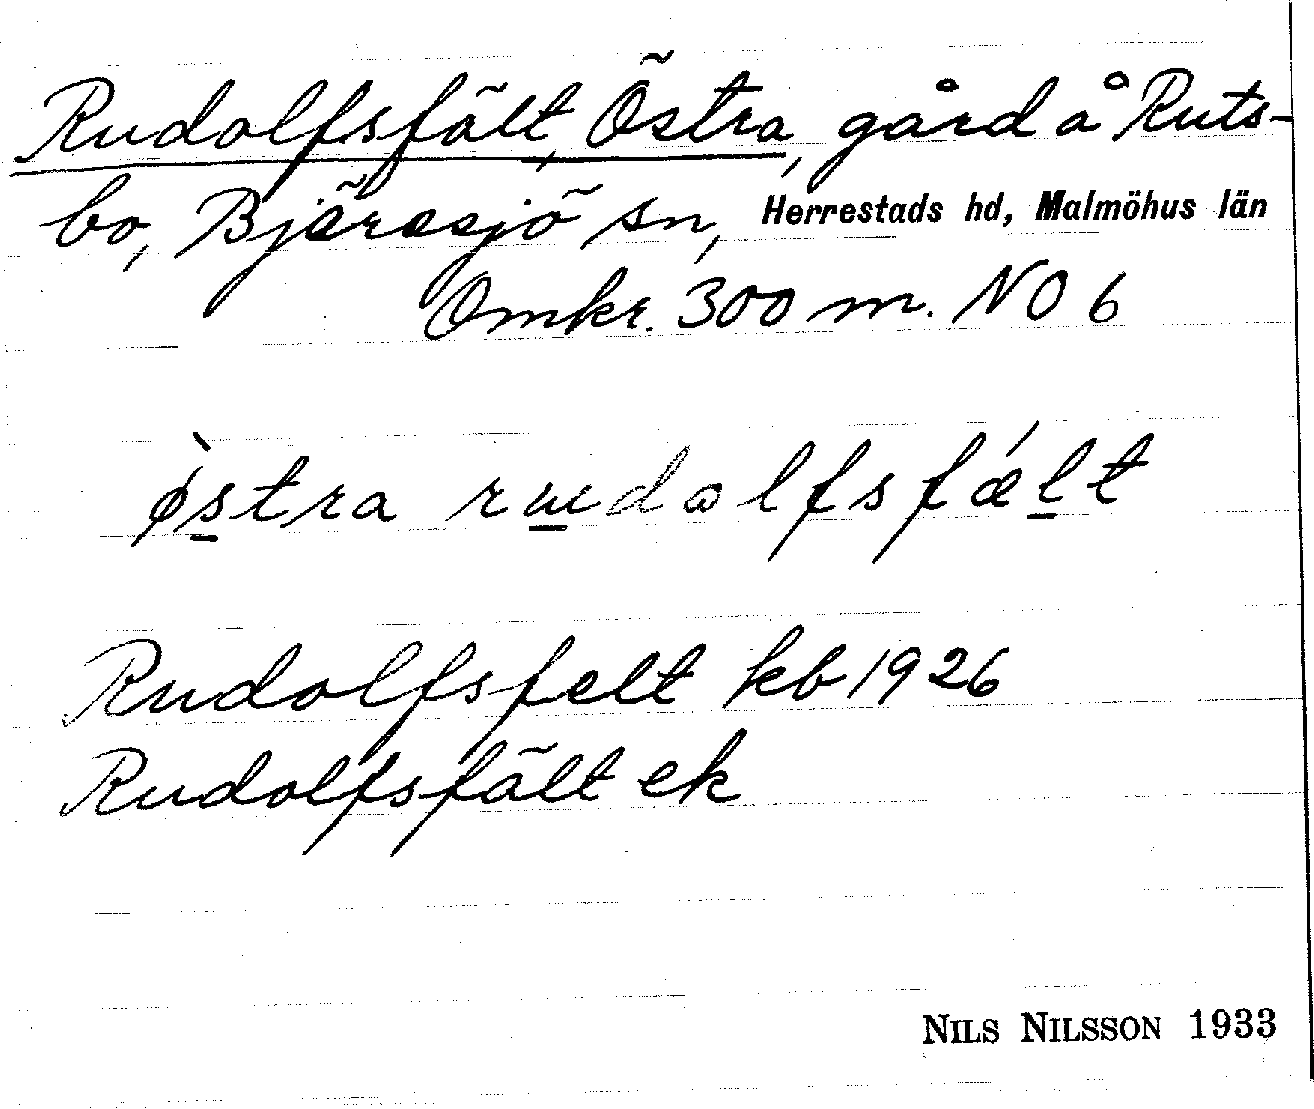 Rudolfsfält, Östra, gård å Ruts-
bo, Bjäresjö sn, Herrestads hd, Malmöhus län
Omkr. 300 m. NO 6
ø̀stra rɯdɷlfsfǽlt
Rudolfsfelt kb 1926
Rudolfsfält ek
NILS NILSSON 1933